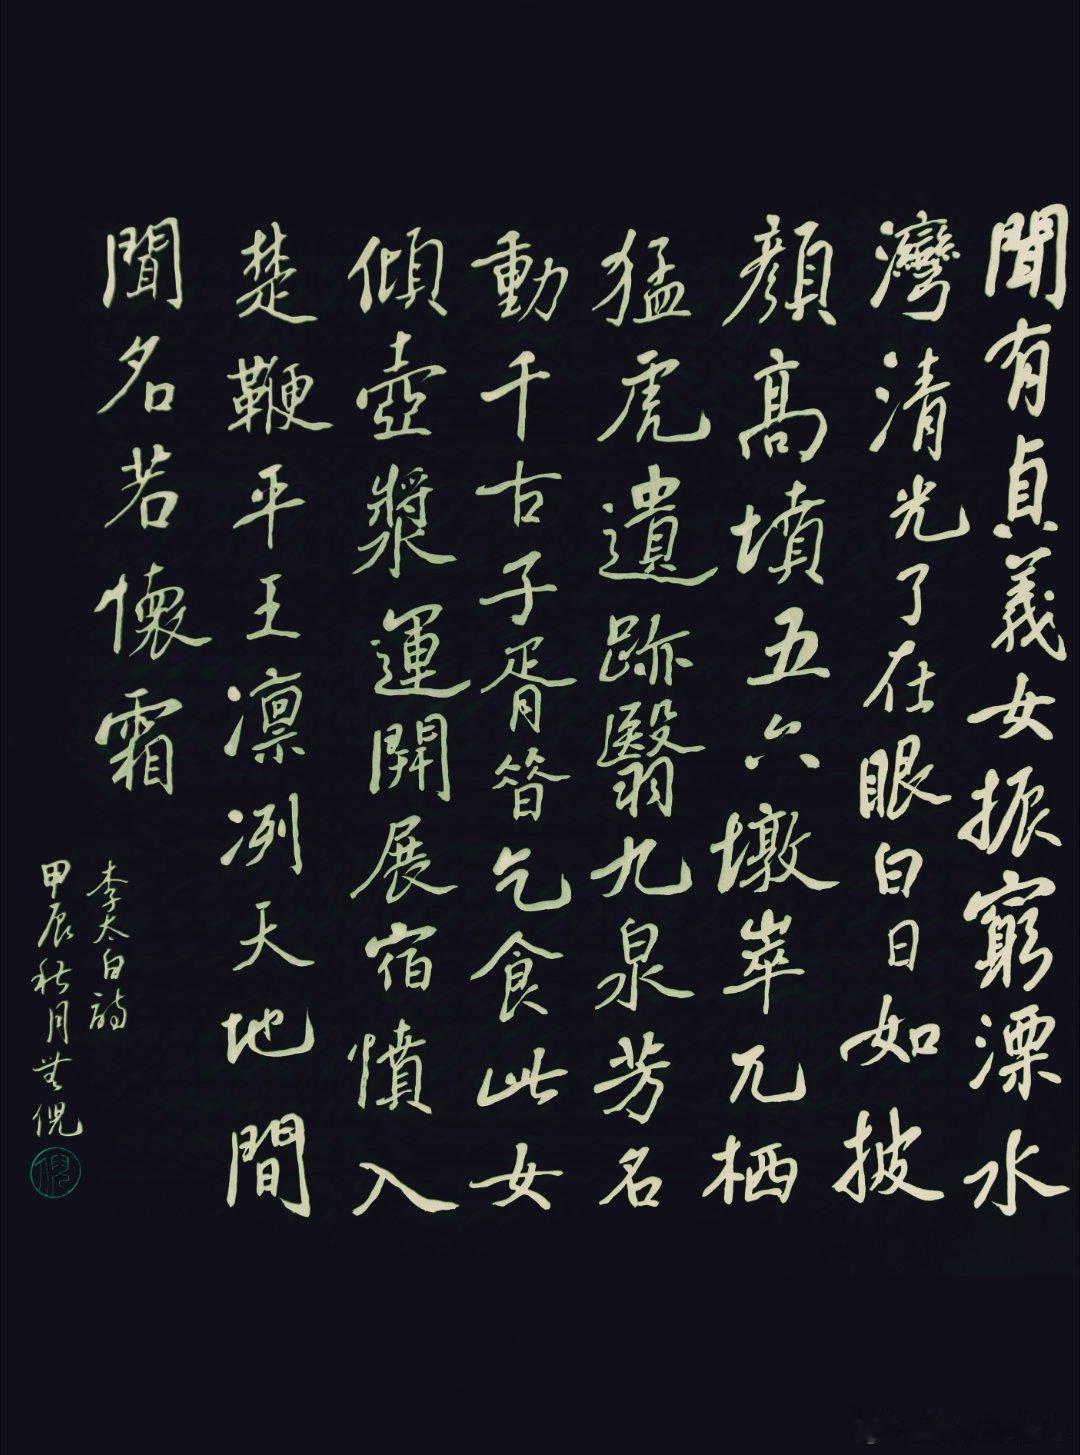 聞有貞義女振窮溧水
灣清光了在眼白日如披
顏髙墳五六墩崒兀栖
猛虎遺跡翳九泉芳名
動千古子胥昔乞食此女
傾壺漿運開展宿憤入
楚鞭平王凛冽天地間
聞名若懷霜
李太白詩
甲辰秋月無倪